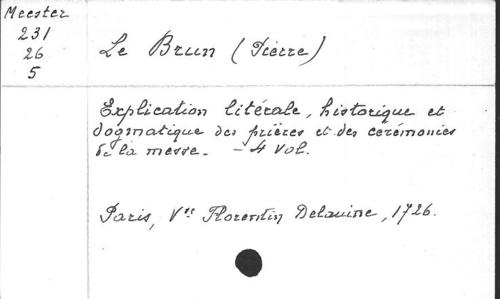 Meester
231
26
5
Le Brun (Pierre)
Explication litérale, historique et
dogmatique des prières et des cerémonies
de la messe. - 4 vol.
Paris, Vve Florentin Delauine, 1726.